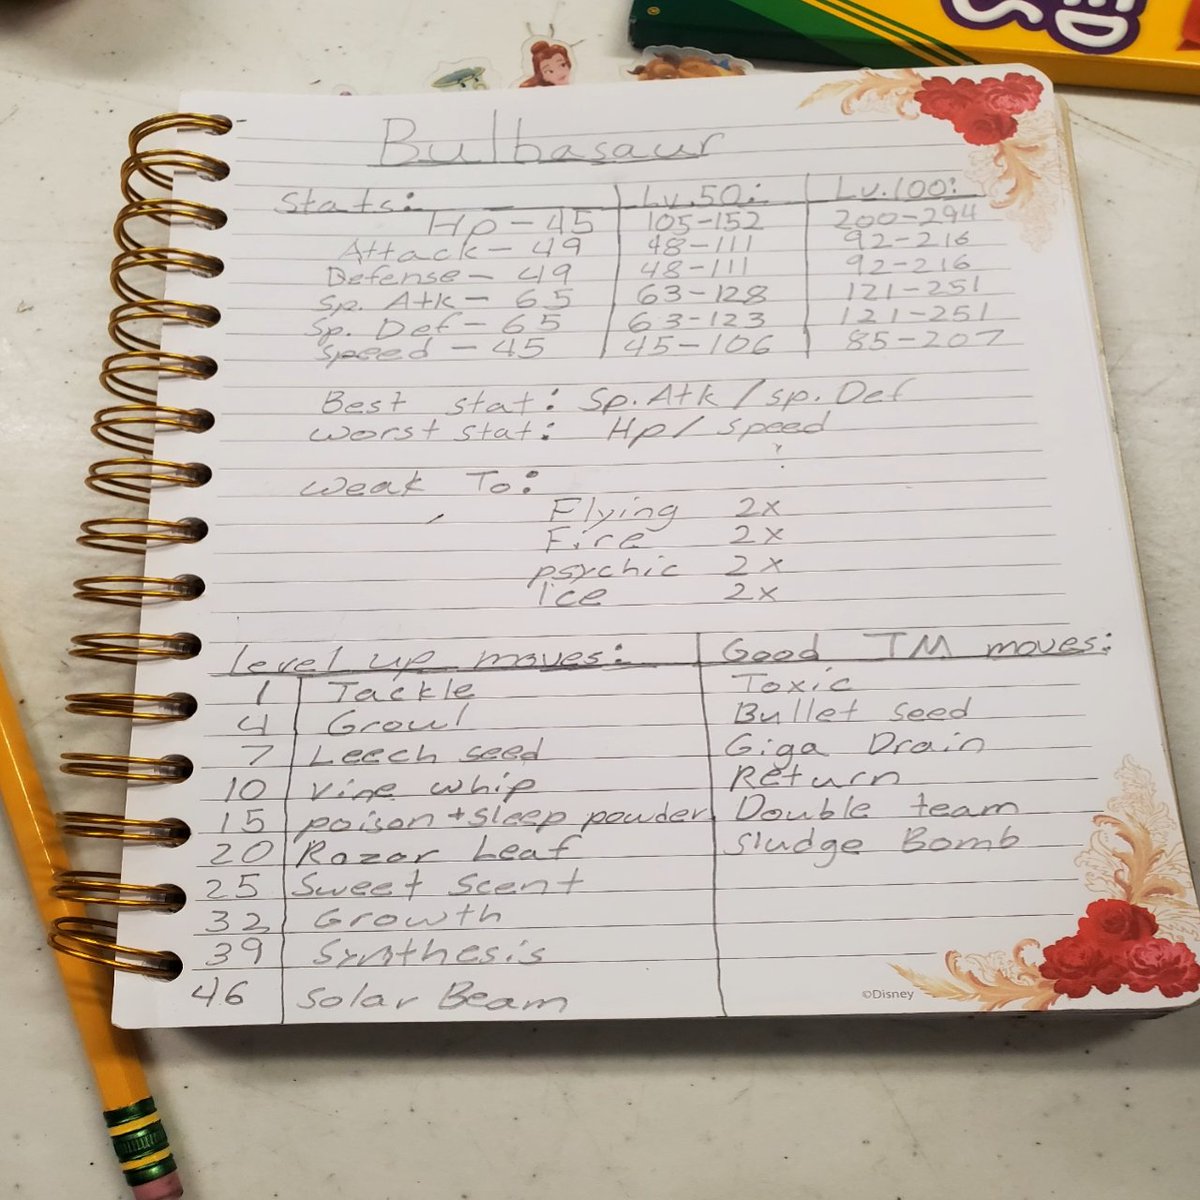 Bulbasaur
Stats: Lv.50: Lv.100:
Hp - 45 105-152 200-294
Attack - 49 48-111 92-216
Defense - 49 48-111 92-216
Sp. Atk - 65 63-128 121-251
Sp. Def - 65 63-123 121-251
Speed - 45 45-106 85-207
Best stat: Sp. Atk / sp. Def
worst stat: Hp / speed
weak To:
Flying 2x
Fire 2x
psychic 2x
Ice 2x
level up moves: Good TM moves:
1 Tackle Toxic
4 Growl Bullet seed
7 Leech seed Giga Drain
10 vine whip Return
15 poison + sleep powder Double team
20 Razor Leaf Sludge Bomb
25 Sweet Scent
32 Growth
39 Synthesis
46 Solar Beam
©Disney